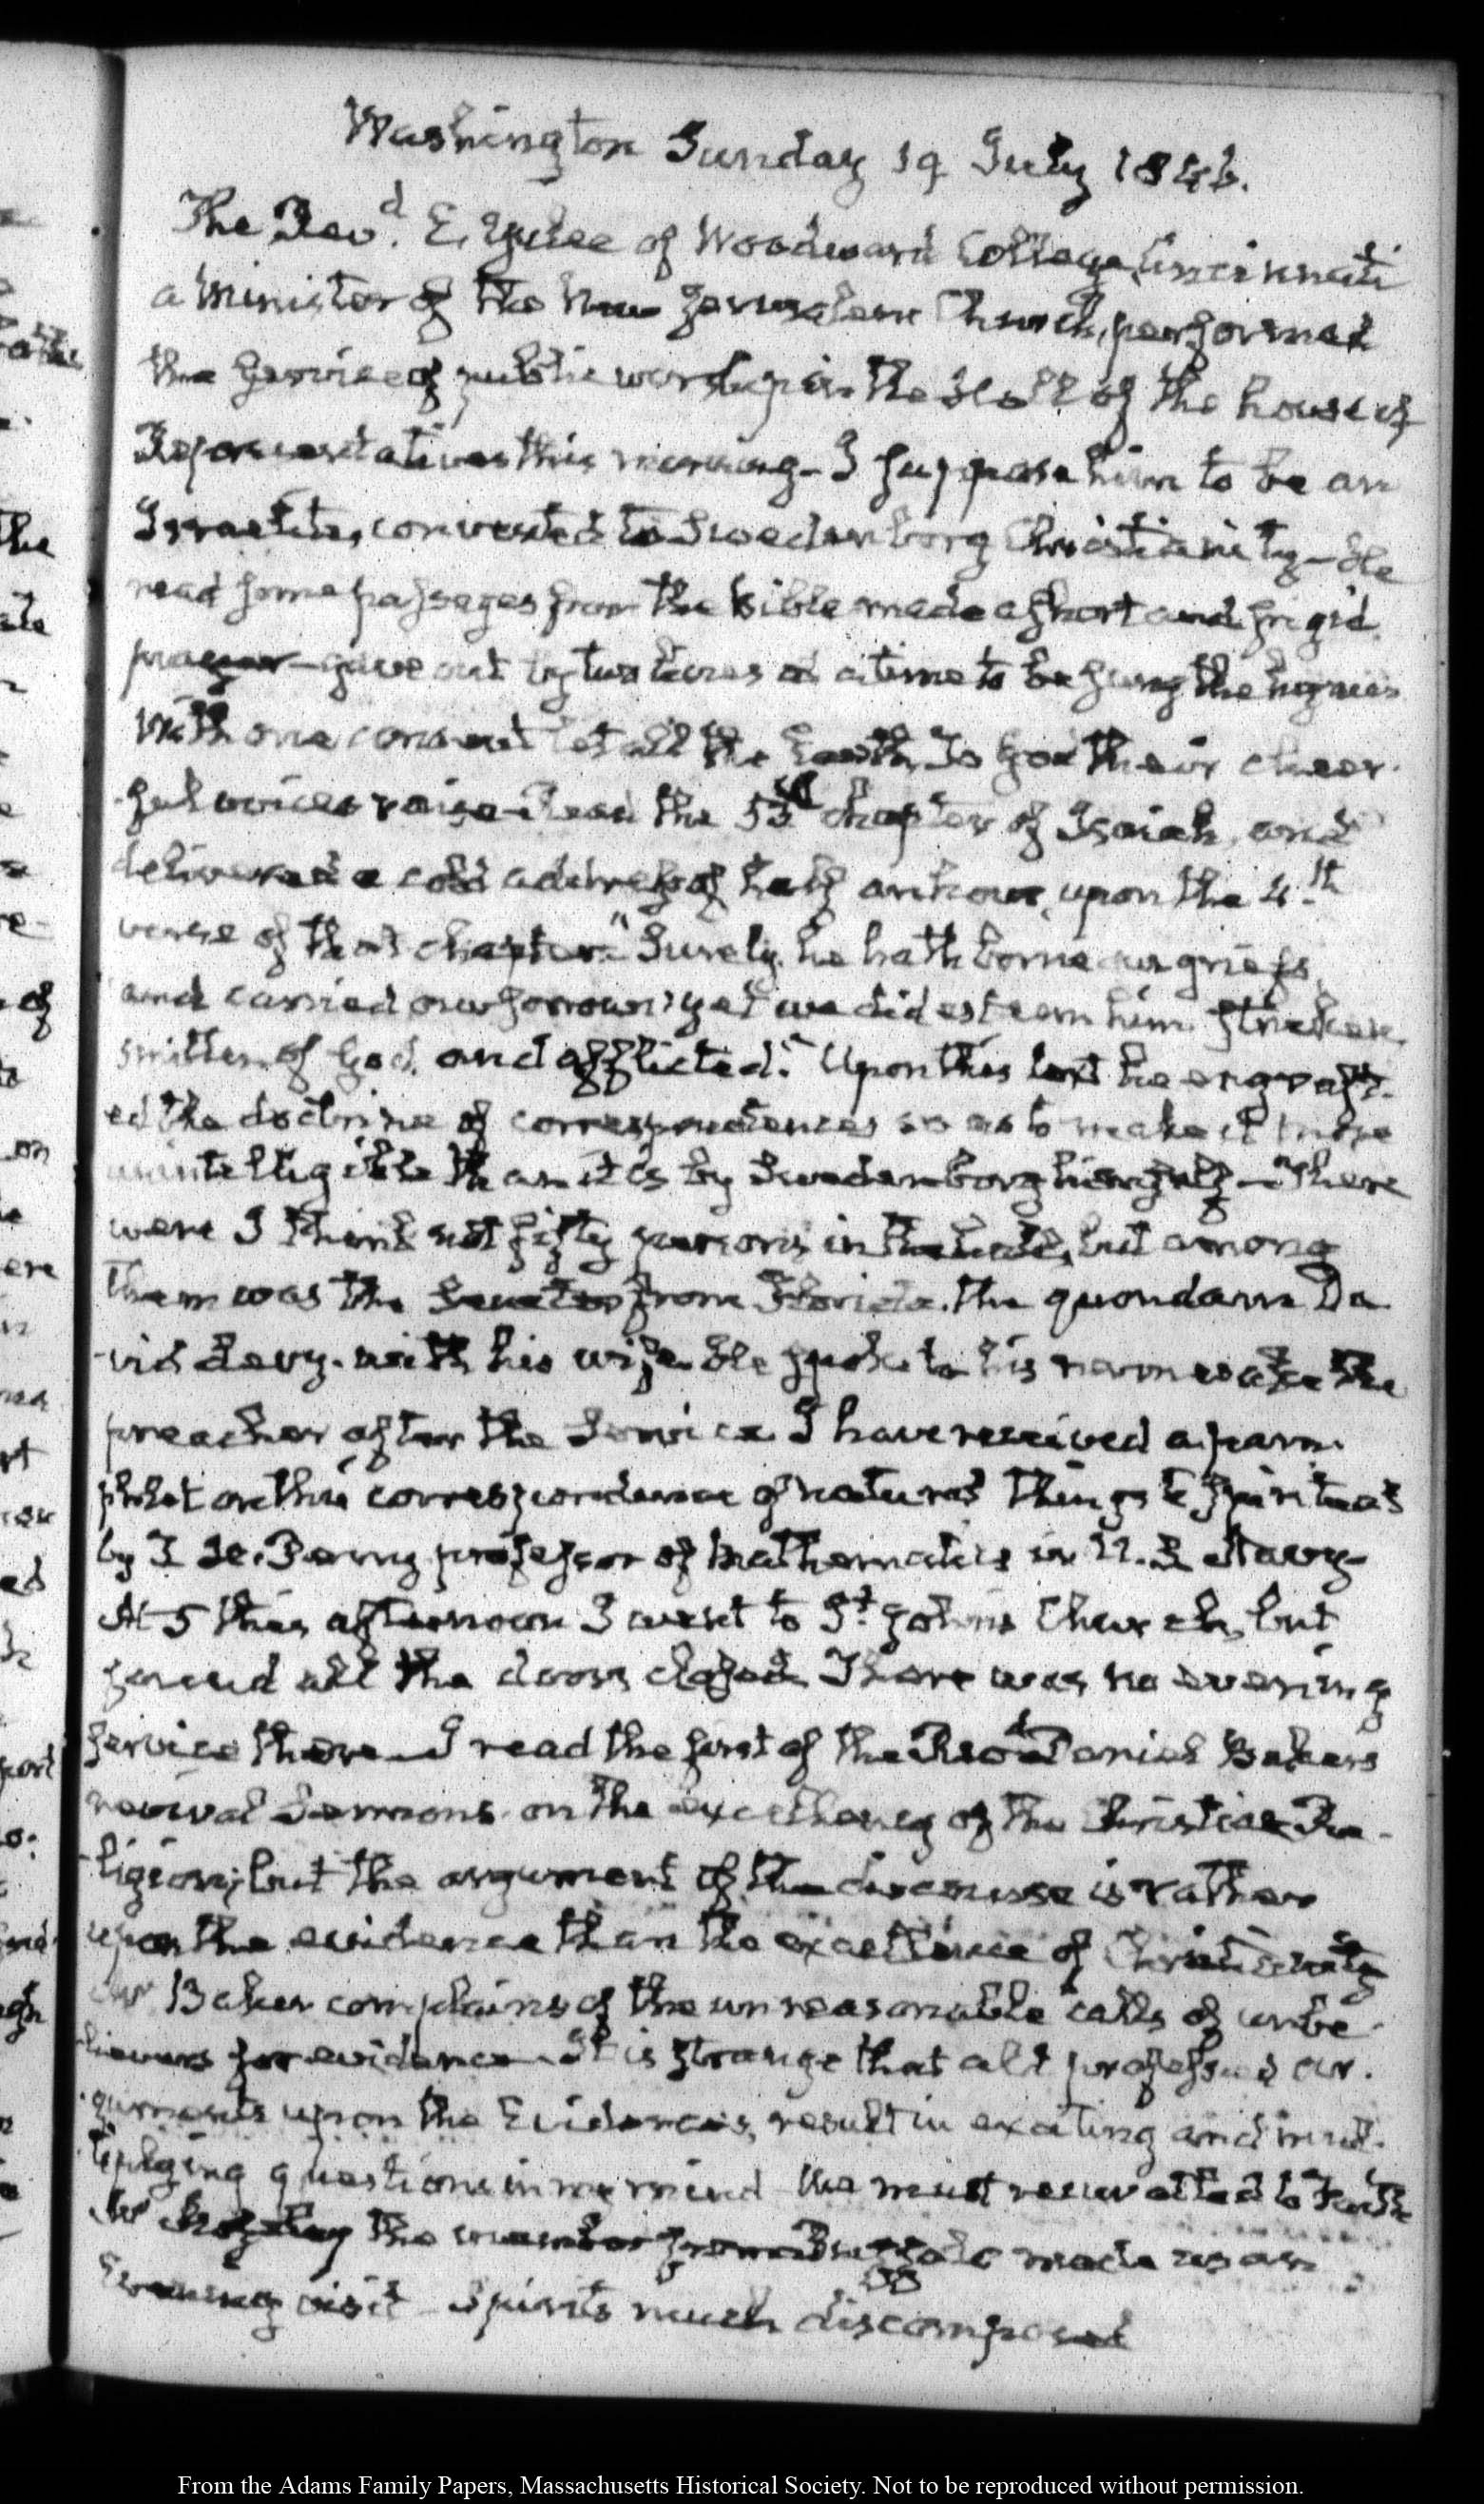 Washington Sunday 19 July 1846.
The Revd. E. Yulee of Woodward College, Cincinnati
a Minister of the New Jerusalem Church, performed
the service of public worship in the Hall of the house of
Representatives this morning- I suppose him to be an
Israelite, converted to Swedenborg Christianity- He
read some passages from the bible made a short and frigid
prayer- gave out by two lines at a time to be sung the hymn
With one consent let all the Earth, To God their cheer-
-ful voices raise- Read the 53d chapter of Isaiah, and
delivered a cold address of half an hour, upon the 4.th
verse of that chapter. "Surely, he hath borne our griefs,
and carried our sorrows; yet we did esteem him stricken,
smitten of God, and afflicted." Upon this text he engraft-
ed the doctrine of correspondences so as to make it more
unintelligible than it is by Swedenborg himself- There
were I think not fifty persons in the hall, but among
them was the Senator from Florida, the quondam Da-
-vid Levy. with his wife. He spoke to his namesake the
preacher after the Service. I have received a pam-
phlet on this correspondence of natural things to spiritual
by professor of Mathematics in U.S. Navy-
At 5 this afternoon I went to St. John's Church, but
found all the doors closed. There was no evening
service there- I read the first of the Revd. Daniel Bakers
revival Sermons. on the excellency of the Christian Re-
-ligion; but the argument of the discourse is rather
upon the evidence than the excellence of Christianity
Mr Baker complains of the unreasonable calls of unbe-
-lievers for evidence- It is strange that all professed ar-
-guments upon the Evidences, result in exciting and mul-
tiplying questions in my mind. We must
Mr the member from made us an
Evening visit- Spirits much discomposed
From the Adams Family Papers, Massachusetts Historical Society. Not to be reproduced without permission.